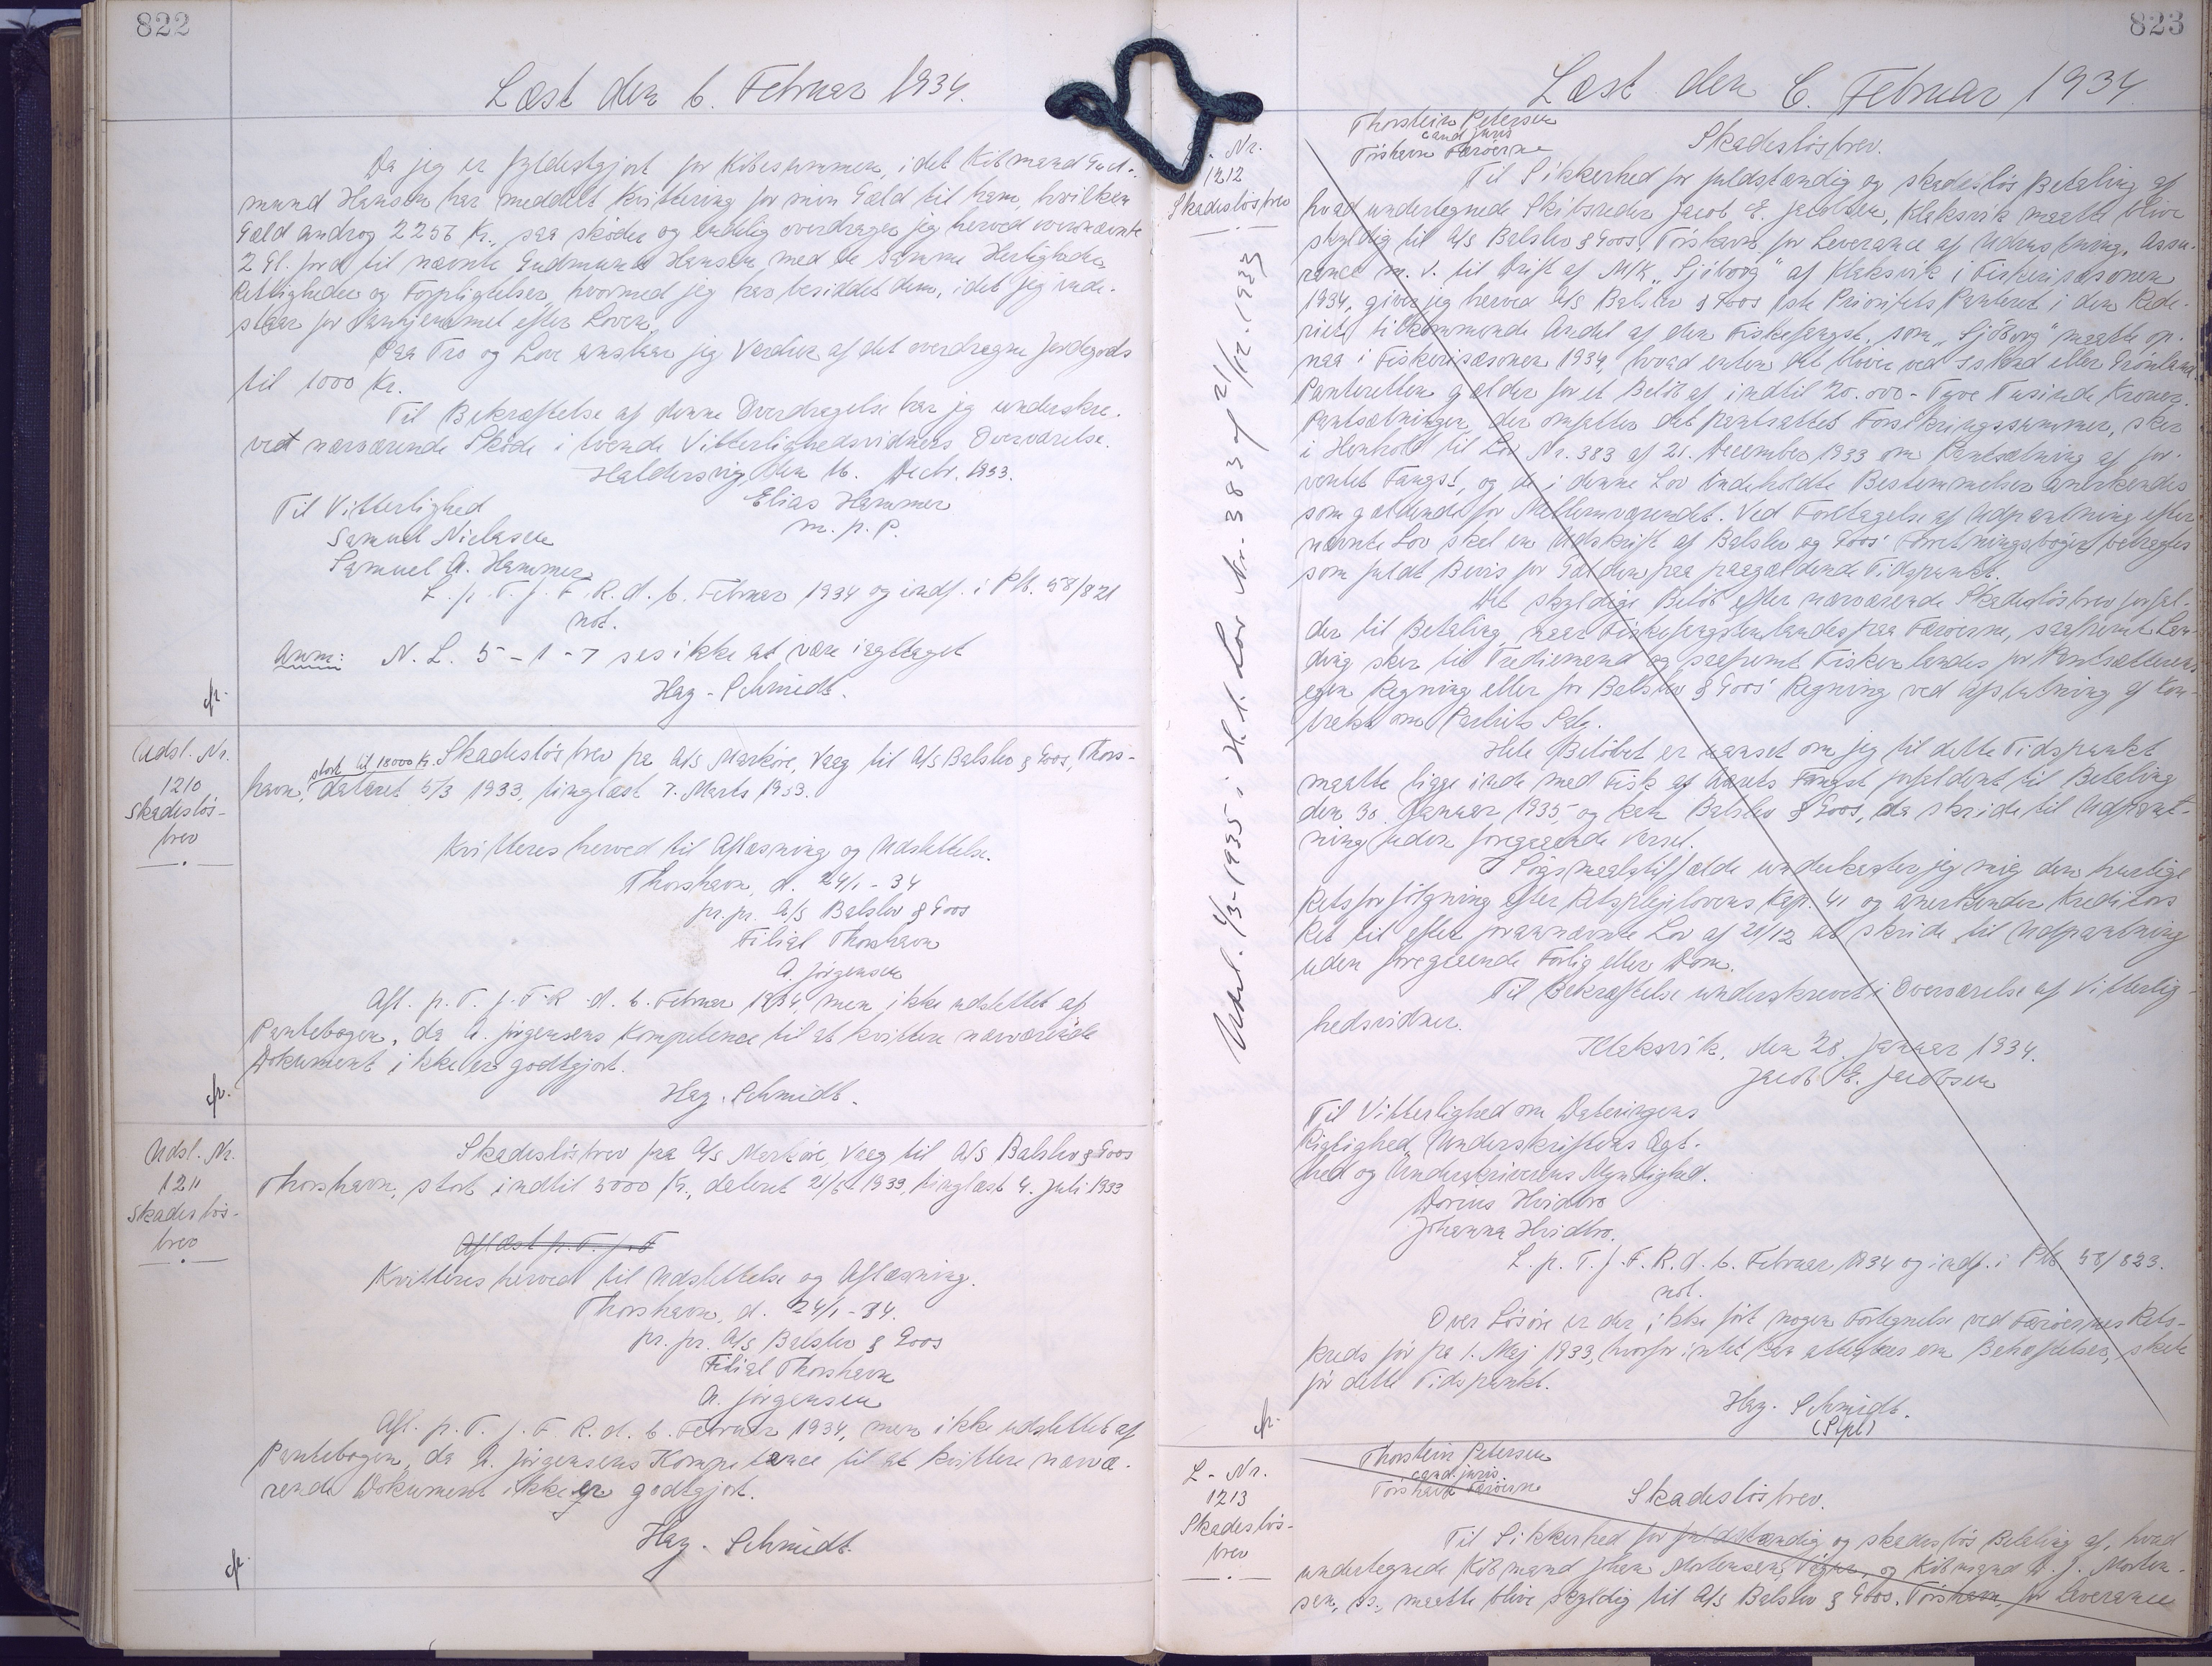 822
Læst den 6. Februar 1934.
Da jeg er fyldestgjort for Köbesummen, idet Köbmand Gud-
mund Hansen har meddelt Kvittering for min Gæld til ham, hvilken
Gæld androg 2256 Kr., saa sköder og endelig overdrager jeg herved ovennævnte
2 Gl. Jord til nævnte Gudmund Hansen med de samme Herligheder
Rettigheder og Forpligtelser, hvormed jeg har besiddet dem, idet jeg inde-
staar for Vanhjemmel efter Loven.
Paa Tro og Love anslaar jeg Værdien af det overdragne Jordegods
til 1000 Kr.
Til Bekræftelse af denne Overdragelse har jeg underskre-
vet nærværende Sköde i tvende Vitterlighedsvidners Overværelse.
Haldersvig, den 16. Decbr. 1933.
Til Vitterlighed
Elias Hammer
m. p. P.
Samuel Nielsen
Samuel A. Hammer
L. p. T. f. F. R. d. 6. Februar 1934 og indf. i Pb. 58/821
not.
Anm: N. L. 5-1-7 ses ikke at være iagttaget
Hag-Schmidt.
cfr.
Udsl. Nr.
1210
Skadeslös-
brev
stort til 18000 Kr.
Skadeslösbrev fra A/S Marköre, Vaag til A/S Balslev & Goos, Thors-
havn, dateret 5/3 1933, tinglæst 7. Marts 1933.
Kvitteres herved til Aflæsning og Udslettelse.
Thorshavn, d. 24/1-34
pr. pr. A/S Balslev & Goos
Filial Thorshavn
A. Jörgensen
Afl. p. T. f. F. R. d. 6. Februar 1934, men ikke udslettet af
Pantebogen, da A. Jörgensens Kompetence til at kvittere nærværende
Dokument ikke er godtgjort.
Hag. Schmidt.
cfr.
Udsl. Nr.
1211
Skadeslös-
brev
Skadeslösbrev fra A/S Marköre, Vaag til A/S Balslev & Goos
Thorshavn, stort indtil 3000 Kr., dateret 21/6 1933, tinglæst 4. Juli 1933
Aflæst p. T. f. F
Kvitteres herved til Udslettelse og Aflæsning.
Thorshavn, d. 24/1-34.
pr. pr. A/S Balslev & Goos
Filial Thorshavn
A. Jörgensen
Afl. p. T. f. F. R. d. 6. Februar 1934, men ikke udslettet af
Pantebogen, da A. Jörgensens Kompetence til at kvittere nærvæ-
rende Dokument ikke er godtgjort.
Hag. Schmidt.
cfr.
823
Læst den 6. Februar 1934.
Thorstein Petersen
cand juris
Tórshavn Færöerne
Nr.
1212
Skadeslösbrev
Udsl. 1/3-1935 i H. t. Lov Nr. 383 af 21/12-1933
Skadeslösbrev.
Til Sikkerhed for fuldstændig og skadeslös Betaling af
hvad undertegnede Skibsreder Jacob E. Jacobsen, Klaksvik maatte blive
skyldig til A/S Balslev & Goos, Tórshavn for Leverance af Udrustning, Assu-
rance m. v. til Drift af M/K "Sjóborg" af Klaksvik i Fiskerisæsonen
1934, giver jeg herved A/S Balslev & Goos 1ste Prioritets Panteret i den Rede-
riet tilkommende Andel af den Fiskefangst, som "Sjóborg" maatte op-
naa i Fiskerisæsonen 1934, hvad enten det bliver ved Island eller Grönland.
Panteretten gælder for et Belöb af indtil 20.000 - Tyve Tusinde Kroner.
Pantsætningen, der omfatter det pantsattes Forsikringssummer, sker
i Henhold til Lov Nr. 383 af 21. December 1933 om Pantsætning af for-
ventet Fangst, og de i denne Lov indeholdte Bestemmelser anerkendes
som gældende for Mellemværendet. Ved Foretagelse af Udpantning efter
nævnte Lov skal en Udskrift af Balslev og Goos' Forretningsböger betragtes
som fuldt Bevis for Gælden paa paagældende Tidspunkt.
Det skyldige Belöb efter nærværende Skadeslösbrev forfal-
der til Betaling, naar Fiskefangsten landes paa Færöerne, saafremt Lan-
ding sker til Trediemand og saafremt Fisken landes for Pantsætterens
egen Regning eller for Balslev & Goos' Regning ved Afslutning af Kon-
trakt om Partiets Salg.
Hele Belöbet er uanset om jeg til dette Tidspunkt
maatte ligge inde med Fisk af Aarets Fangst forfaldent til Betaling
den 30. Januar 1935, og kan Balslev & Goos, da skride til Udpant-
ning uden foregaaende Varsel.
I Sögsmaalstilfælde underkaster jeg mig den hurtige
Retsforfölgning efter Retsplejelovens Kap. 41 og anerkender Kreditors
Ret til efter forannævnte Lov af 21/12 at skride til Udpantning
uden foregaaende Forlig eller Dom.
Til Bekræftelse underskrevet i Overværelse af Vitterlig-
hedsvidner.
Klaksvik, den 28. Januar 1934.
Jacob E. Jacobsen
Til Vitterlighed om Dateringens
Rigtighed, Underskriftens Ægt-
hed og Underskriverens Myndighed.
Dorius Hvidbro
Johanna Hvidbro.
L. p. T. f. F. R. d. 6. Februar 1934 og indf. i Pb 58/823.
not.
Over Lösöre er der ikke fört nogen Fortegnelse ved Færöernes Rets-
kreds för fra 1. Maj 1933, hvorfor intet kan attesteres om Behæftelser, skete
för dette Tidspunkt.
Hag. Schmidt.
cfr.
L - Nr.
1213
Skadeslös-
brev
Thorstein Petersen
cand. juris
Tórshavn Færöerne
Skadeslösbrev.
Til Sikkerhed for fuldstændig og skadeslös Betaling af, hvad
undertegnede Köbmand Johan Mortensen, og Köbmand J. Morten-
sen, maatte blive skyldig til A/S Balslev & Goos, Tórshavn, for Leverance